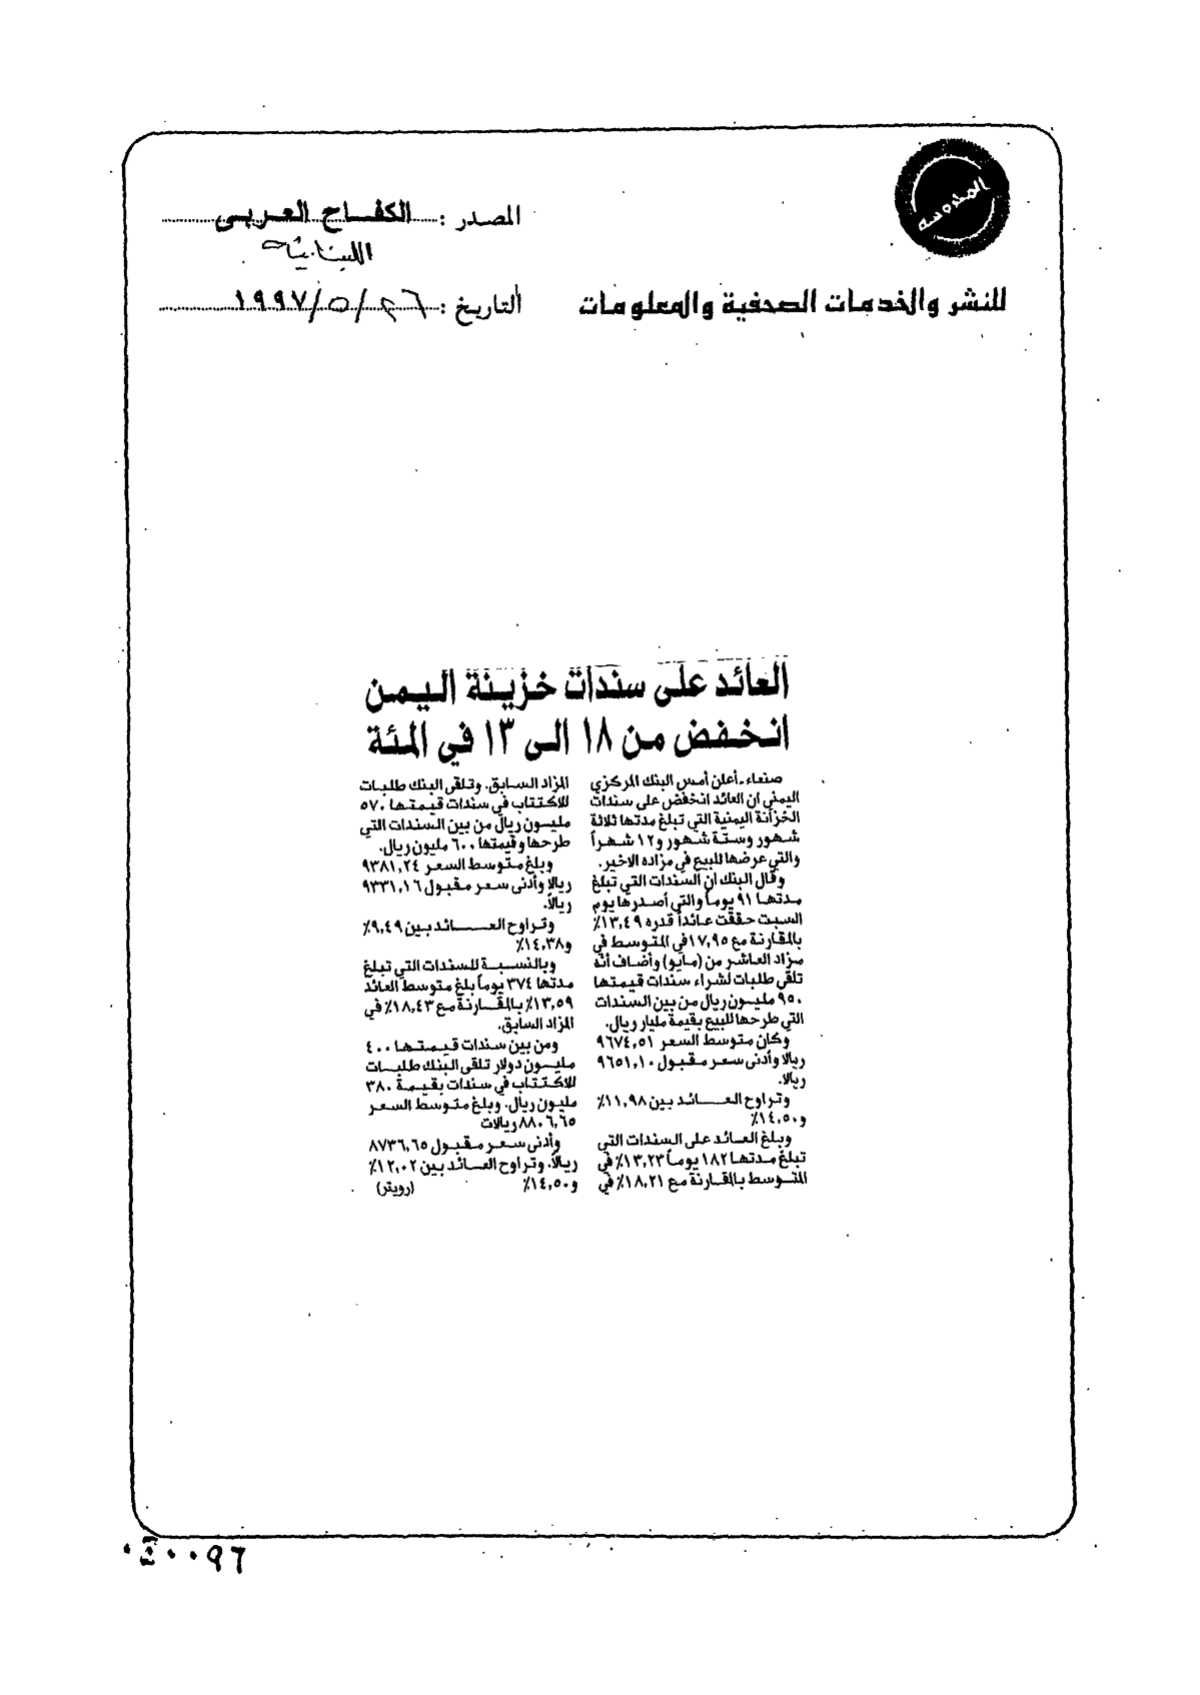 المحروسة
للنشر والخدمات الصحفية والمعلومات
المصدر : الكفاح العربي
اللبنانية
التاريخ : ٢٦/٥/١٩٩٧
العائد على سندات خزينة اليمن
انخفض من ١٨ الى ١٣ في المئة
صنعاء ـ أعلن أمس البنك المركزي
اليمني ان العائد انخفض على سندات
الخزانة اليمنية التي تبلغ مدتها ثلاثة
شهور وستة شهور و١٢ شهراً
والتي عرضها للبيع في مزاده الاخير.
وقال البنك ان السندات التي تبلغ
مدتها ٩١ يوماً والتي أصدرها يوم
السبت حققت عائداً قدره ١٣,٤٩٪
بالمقارنة مع ١٧,٩٥ في المتوسط في
مزاد العاشر من (مايو) وأضاف أنه
تلقى طلبات لشراء سندات قيمتها
٩٥٠ مليون ريال من بين السندات
التي طرحها للبيع بقيمة مليار ريال.
وكان متوسط السعر ٩٦٧٤,٥١
ريالا وأدنى سعر مقبول ٩٦٥١,١٠
ريالا.
وتراوح العائد بين ١١,٩٨٪
و١٤,٥٠٪
وبلغ العائد على السندات التي
تبلغ مدتها ١٨٢ يوماً ١٣,٢٣٪ في
المتوسط بالمقارنة مع ١٨,٢١٪ في
المزاد السابق. وتلقى البنك طلبات
للاكتتاب في سندات قيمتها ٥٧٠
مليون ريال من بين السندات التي
طرحها وقيمتها ٦٠٠ مليون ريال.
وبلغ متوسط السعر ٩٣٨١,٢٤
ريالا وأدنى سعر مقبول ٩٣٣١,١٦
ريالاً.
وتراوح العائد بين ٩,٤٩٪
و١٤,٣٨٪
وبالنسبة للسندات التي تبلغ
مدتها ٣٧٤ يوماً بلغ متوسط العائد
١٣,٥٩٪ بالمقارنة مع ١٨,٤٣٪ في
المزاد السابق.
ومن بين سندات قيمتها ٤٠٠
مليون دولار تلقى البنك طلبات
للاكتتاب في سندات بقيمة ٣٨٠
مليون ريال. وبلغ متوسط السعر
٨٨٠٦,٦٥ ريالات
وأدنى سعر مقبول ٨٧٣٦,٦٥
ريالاً. وتراوح العائد بين ١٢,٠٢٪
و١٤,٥٠٪ (رويتر)